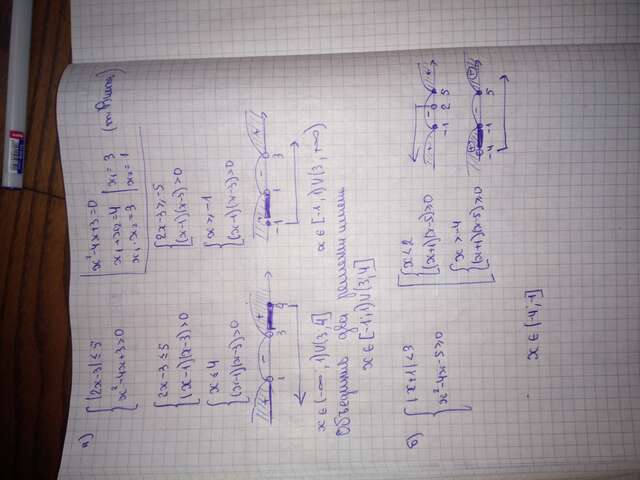 а) { |2x-3| ≤ 5
x²-4x+3>0
x²-4x+3=0
x₁+x₂=4 | x₁=3
x₁·x₂=3 | x₂=1 (т. Виета)
{ 2x-3 ≤ 5
(x-1)(x-3)>0
{ 2x-3 ≥ -5
(x-1)(x-3)>0
{ x ≤ 4
(x-1)(x-3)>0
{ x ≥ -1
(x-1)(x-3)>0
+ - +
1 3 4
+ - +
-1 1 3
x ∈ (-∞, 1)∪(3, 4]
x ∈ [-1, 1)∪(3, +∞)
Объединить два решения имеем
x ∈ [-1, 1)∪(3, 4]
б) { |x+1| < 3
x²-4x-5 ≥ 0
[ { x < 2
(x+1)(x-5) ≥ 0
{ x > -4
(x+1)(x-5) ≥ 0
+ - - +
-1 2 5
+ - +
-4 -1 5
x ∈ (-4, -1]